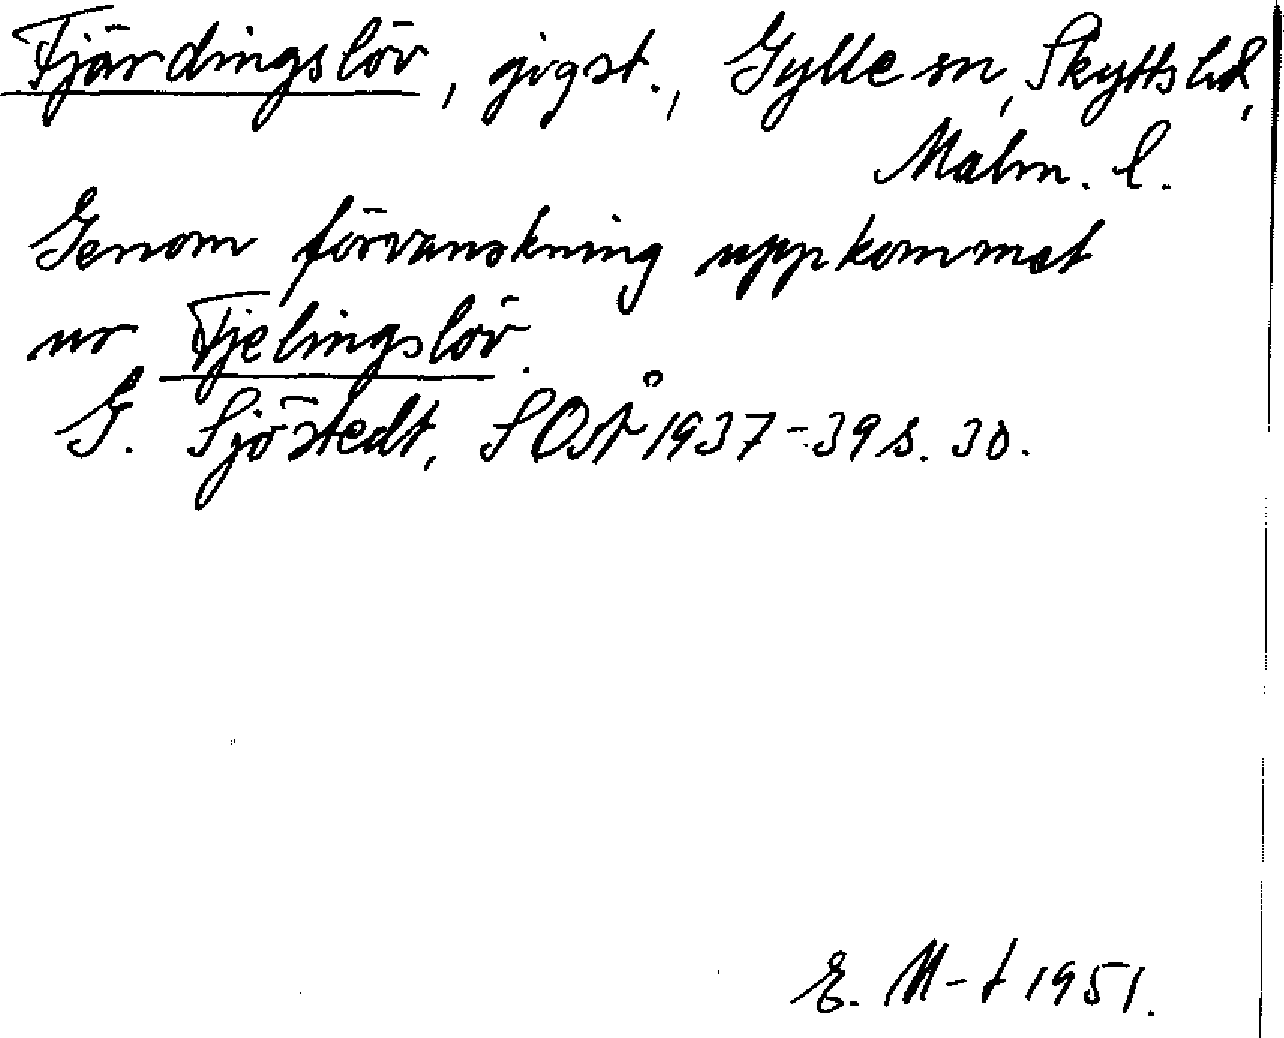 Fjärdingslöv, jvgst., Gylle sn, Skytts hd,
Malm. l.
Genom förvanskning uppkommet
ur Fjelingslöv.
G. Sjöstedt, SOSÅ 1937-39 s. 30.
E. M-t 1951.